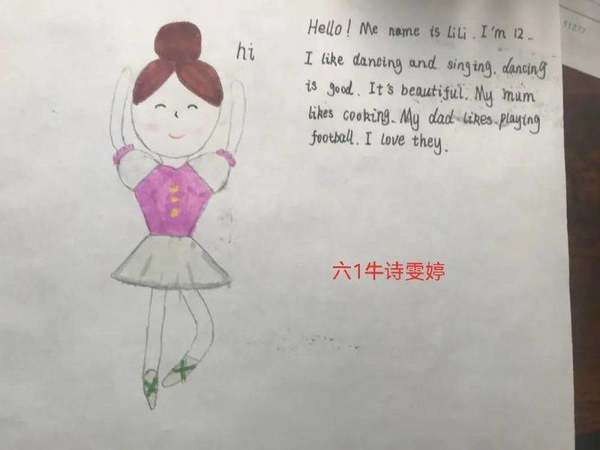 hi
Hello! Me name is LiLi. I'm 12.
I like dancing and singing. dancing
is good. It's beautiful. My mum
likes cooking. My dad likes playing
football. I love they.
六1牛诗雯婷